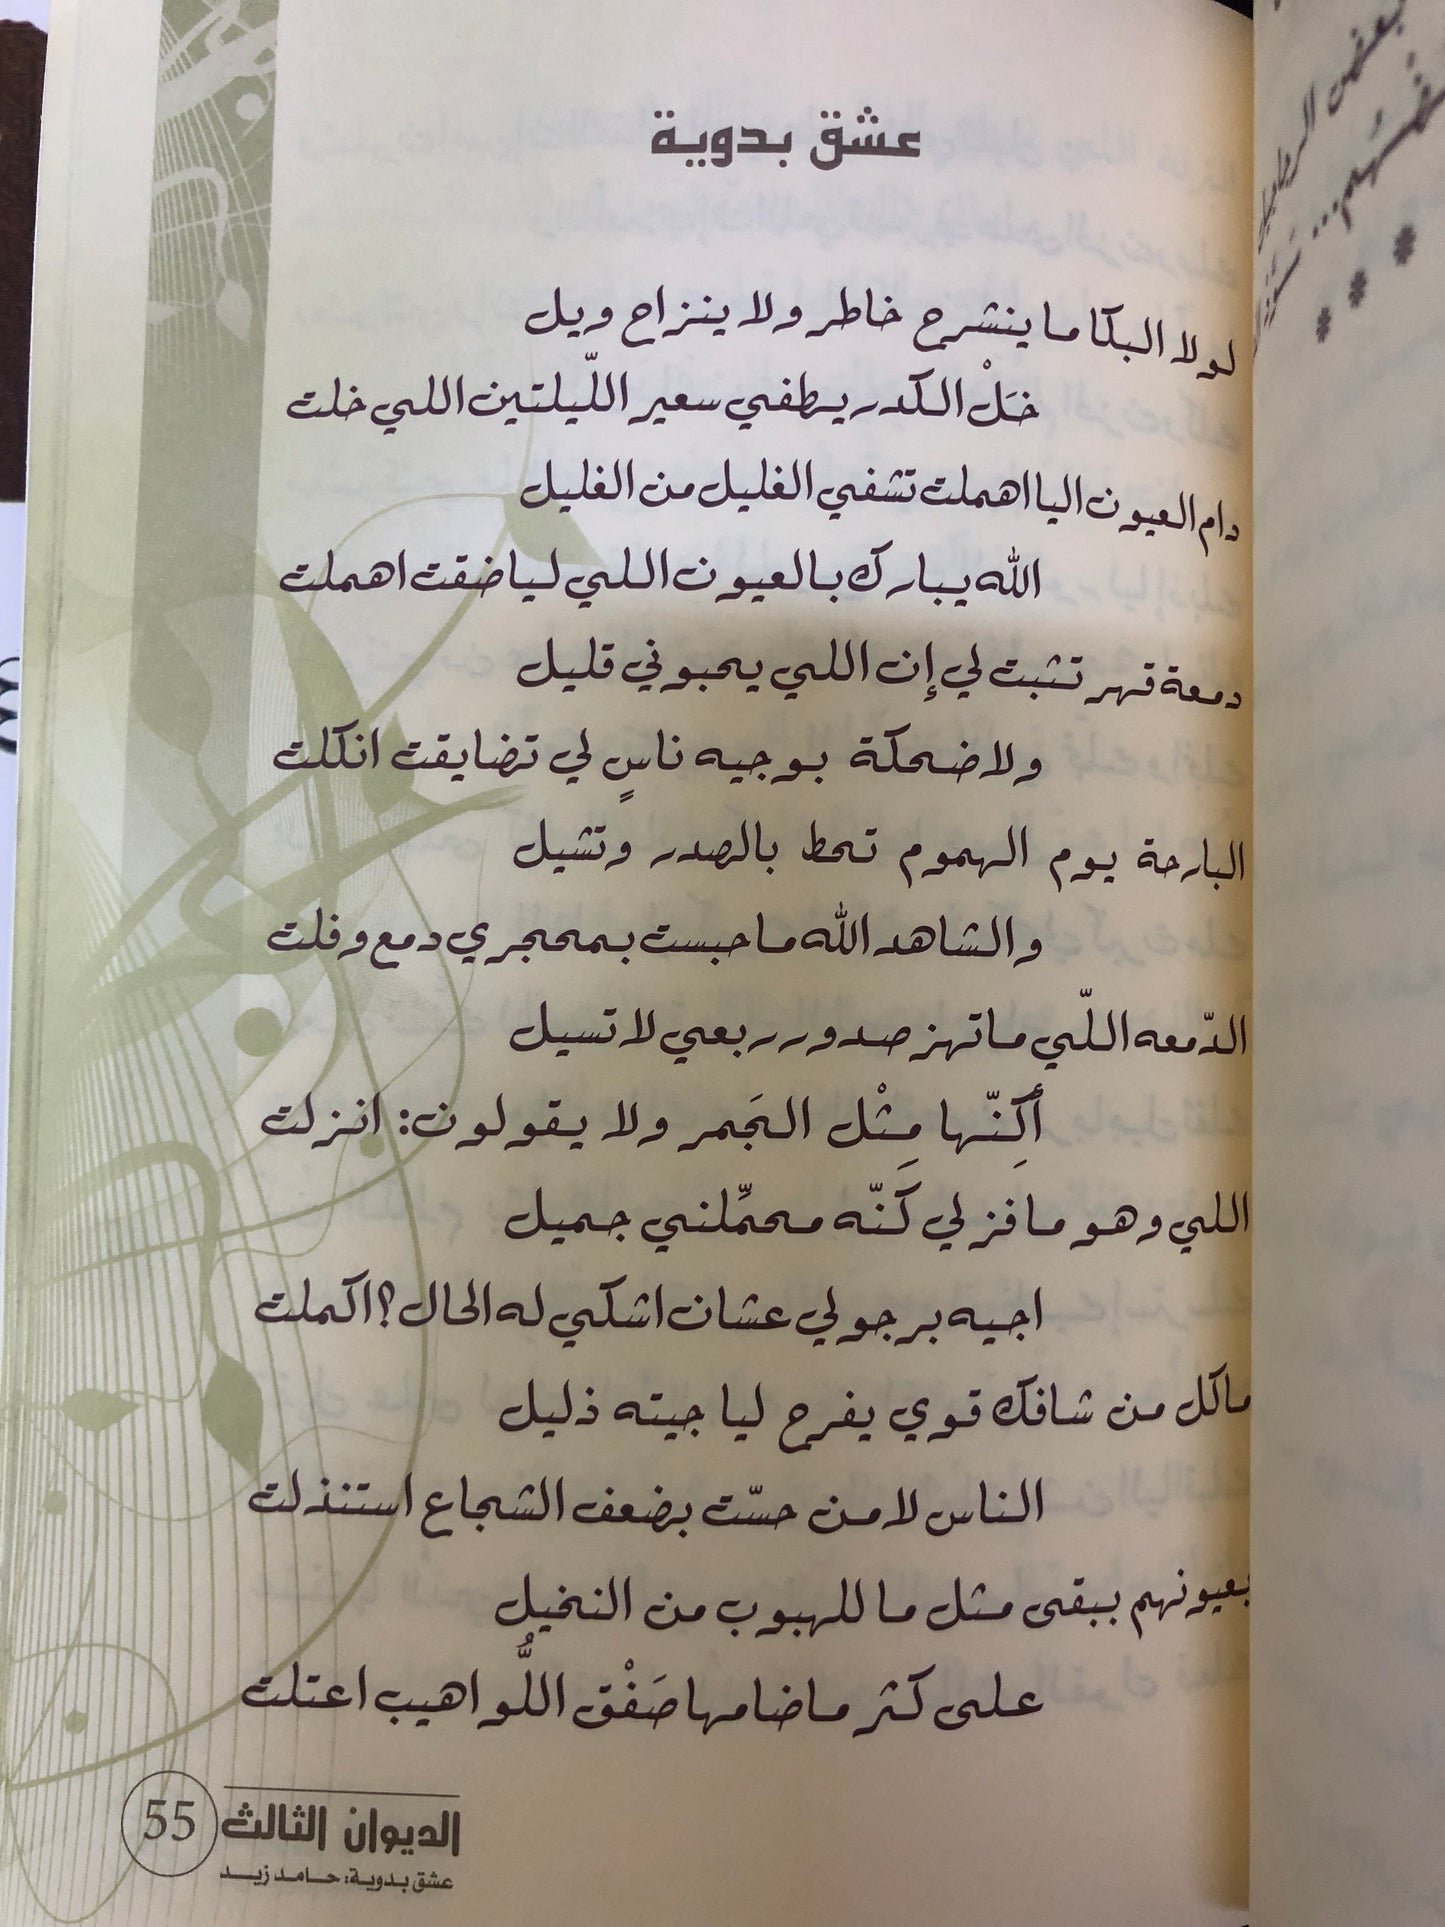 عشق بدوية
لولا البكا ما ينشرح خاطر ولا ينزاح ويل
خَلْ الكدر يطفي سعير اللّيلتين اللي خلت
دام العيون اليا اهملت تشفي الغليل من الغليل
الله يبارك بالعيون اللي ليا ضقت اهملت
دمعة قهر تثبت لي إن اللي يحبوني قليل
ولا ضحكة بوجيه ناسٍ لي تضايقت انكلت
البارحة يوم الهموم تحط بالصدر وتشيل
والشاهد الله ما حبست بمحجري دمع وفلت
الدّمعه اللّي ما تهز صدور ربعي لا تسيل
أكِنّها مِثْل الجَمر ولا يقولون: انزلت
اللي وهو ما فز لي كَنّه محمِّلني جميل
اجيه برجولي عشان اشكي له الحال؟ اكملت
ما كل من شافك قوي يفرح ليا جيته ذليل
الناس لا من حسّت بضعف الشجاع استنذلت
بعيونهم ببقى مثل ما للهبوب من النخيل
على كثر ما ضامها صَفْق اللُّواهيب اعتلت
55
الديوان الثالث
عشق بدوية: حامد زيد
بعض الرجال